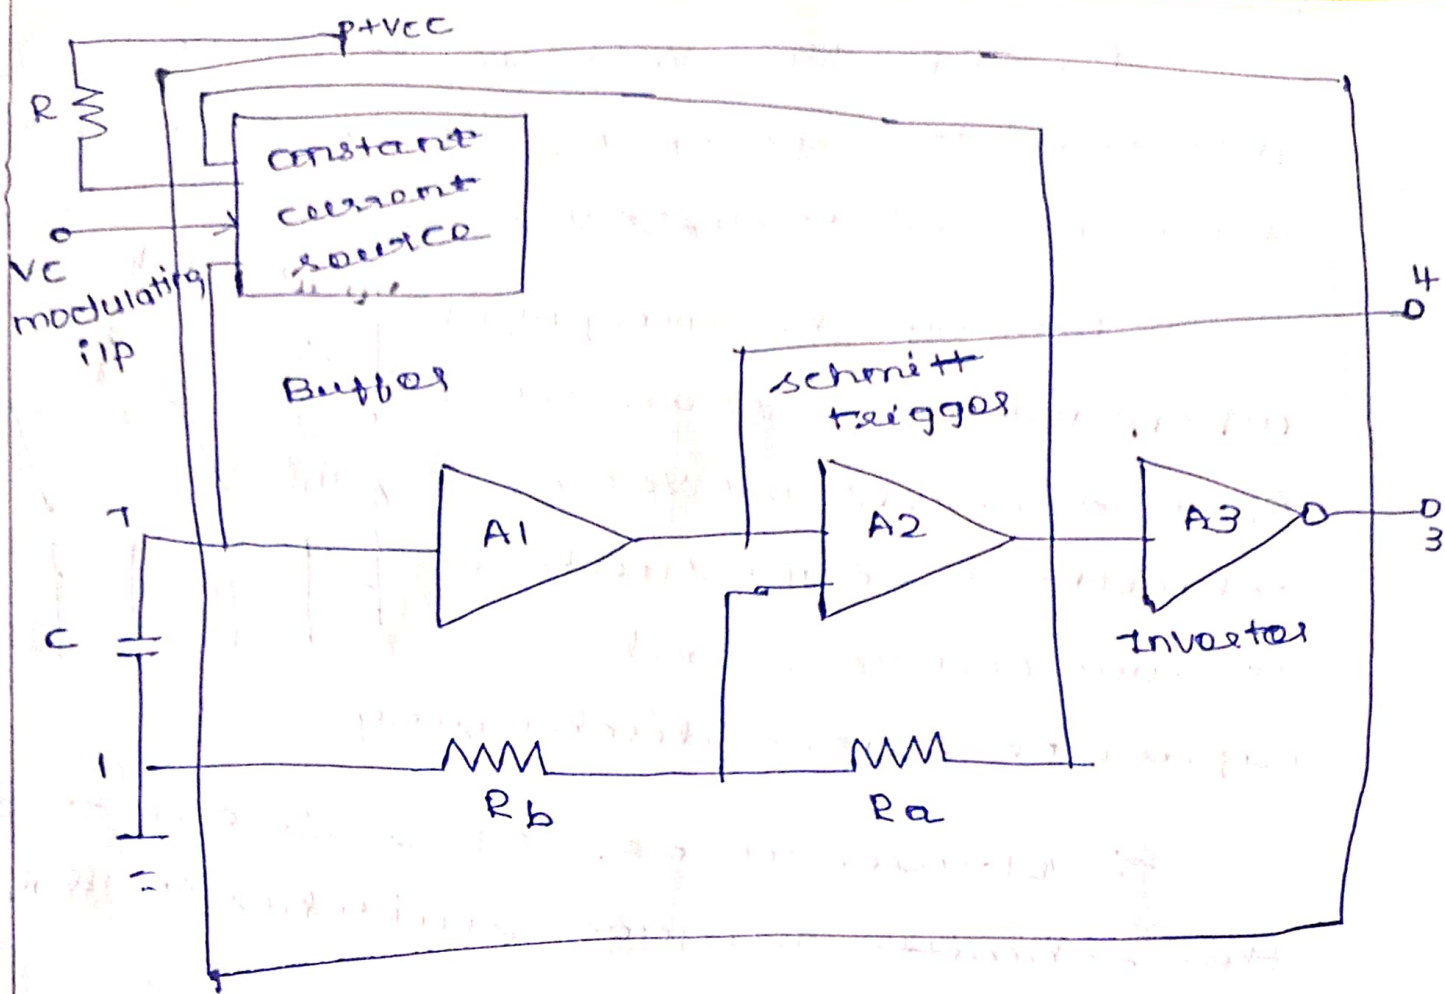 P+VCC
R
constant
current
source
VC
modulating
i/p
4
Buffer
schmitt
trigger
7
A1
A2
A3
3
C
Invertor
1
Rb
Ra